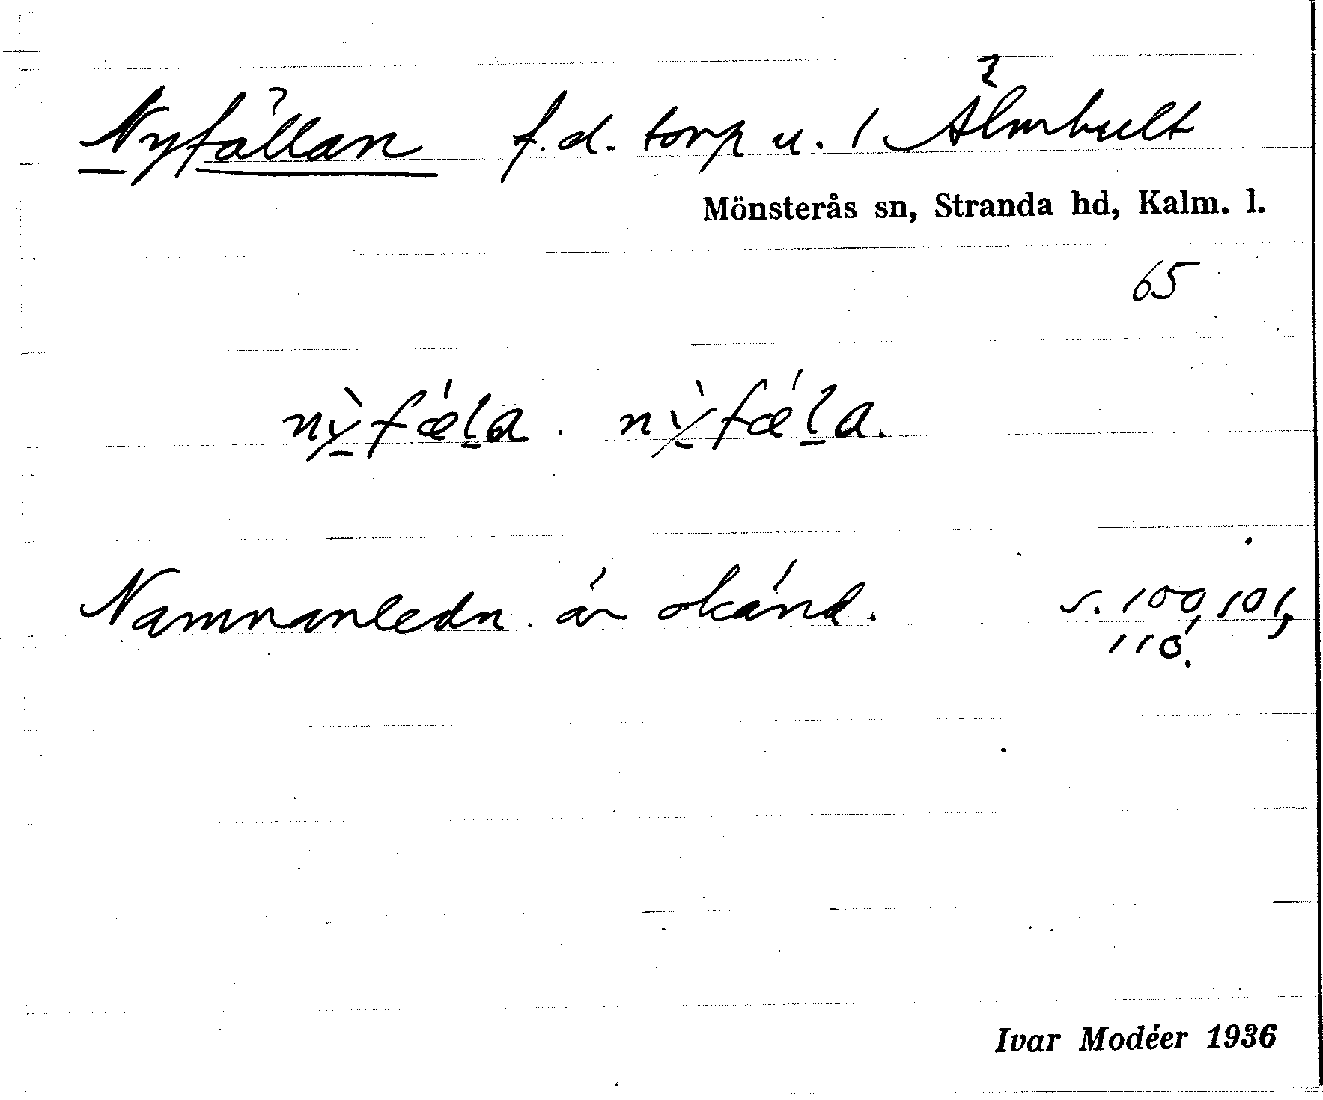 Nyfällan f.d. torp u. 1 Älmhult
Mönsterås sn, Stranda hd, Kalm. l.
65
nỳfǽla. nỳfǽla.
Namnanledn. är okänd. s. 100, 101,
110.
Ivar Modéer 1936